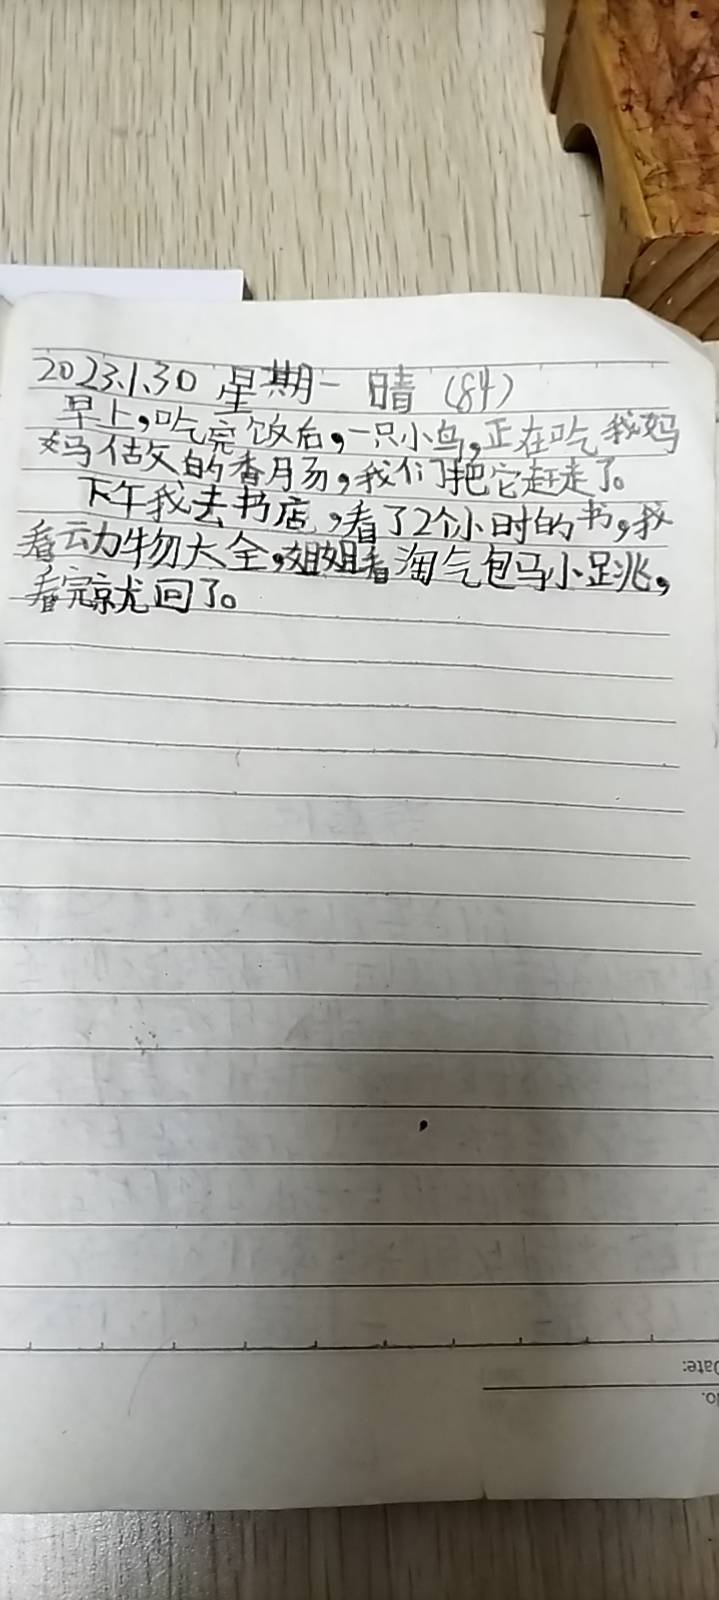 2023.1.30 星期一 晴 (84)
早上,吃完饭后,一只小鸟,正在吃我妈
妈做的香肠,我们把它赶走了。
下午我去书店,看了2个小时的书,我
看动物大全,姐姐看淘气包马小跳,
看完就回了。
Date:
No.